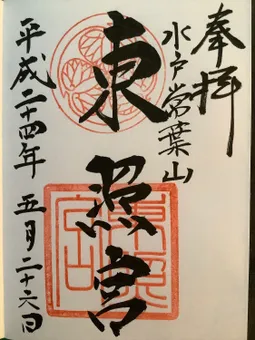 奉拝
水戸常葉山
東照宮
平成二十四年 五月二十六日